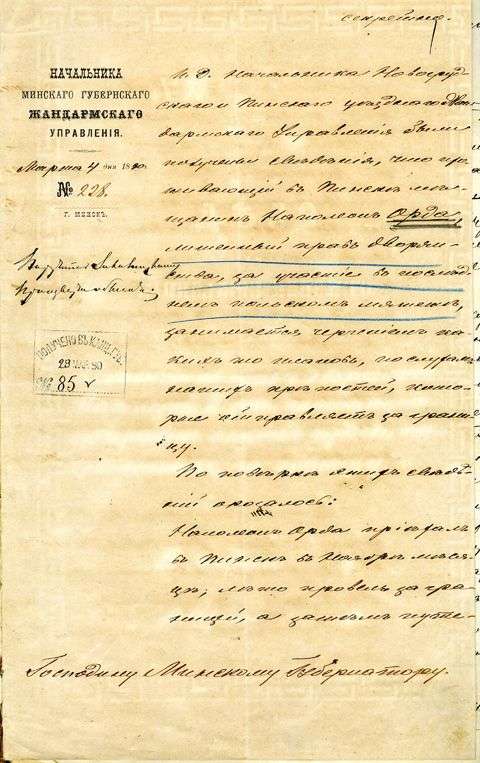 секретно.
НАЧАЛЬНИКА
МИНСКАГО ГУБЕРНСКАГО
ЖАНДАРМСКАГО
УПРАВЛЕНІЯ.
Марта 4 дня 1880.
№ 228.
Г. МИНСКЪ.
ПОЛУЧЕНО ВЪ КАНЦ.
№ 85
И. Д. Начальника Новогруд-
скаго и Пинскаго уезднаго Жан-
дармскаго Управленія были
получены сведенія, что про-
живающій въ Пинске мѣ-
щанинъ Наполеонъ Орда,
лишенный правъ Дворян-
ства, за участіе въ послѣд-
немъ польскомъ мятежѣ,
занимается черченіемъ ка-
кихъ то плановъ, по слухамъ
нашихъ крѣпостей, кото-
рые отправляетъ за грани-
цу.
По повѣркѣ этихъ свѣдѣ-
ній оказалось:
Наполеонъ Орда пріѣхалъ
въ Пинскъ въ Ноябрѣ мѣся-
цѣ, лѣто провелъ за гра-
ницей, а затемъ путе-
Господину Минскому Губернатору.